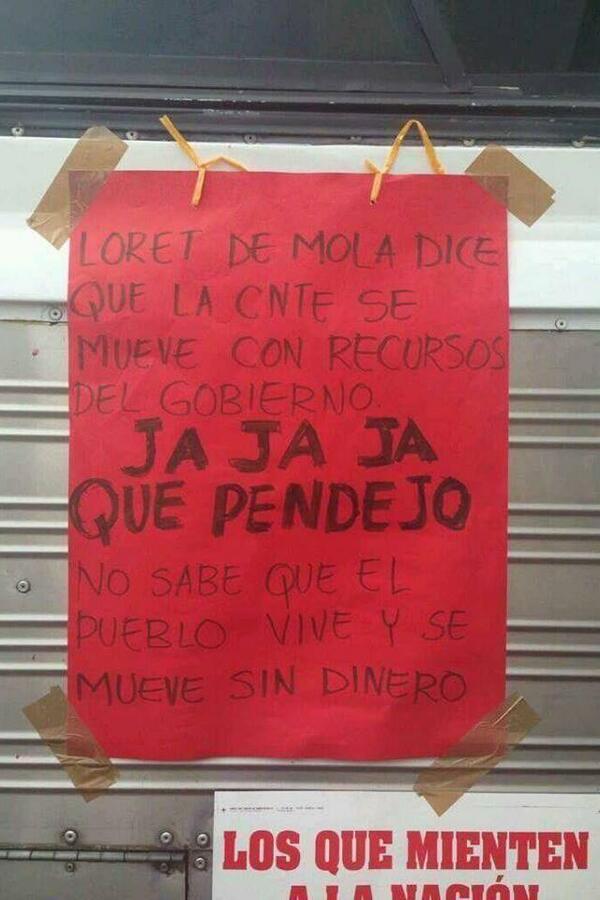 LORET DE MOLA DICE
QUE LA CNTE SE
MUEVE CON RECURSOS
DEL GOBIERNO.
JA JA JA
QUE PENDEJO
NO SABE QUE EL
PUEBLO VIVE Y SE
MUEVE SIN DINERO
LOS QUE MIENTEN
A LA NACIÓN